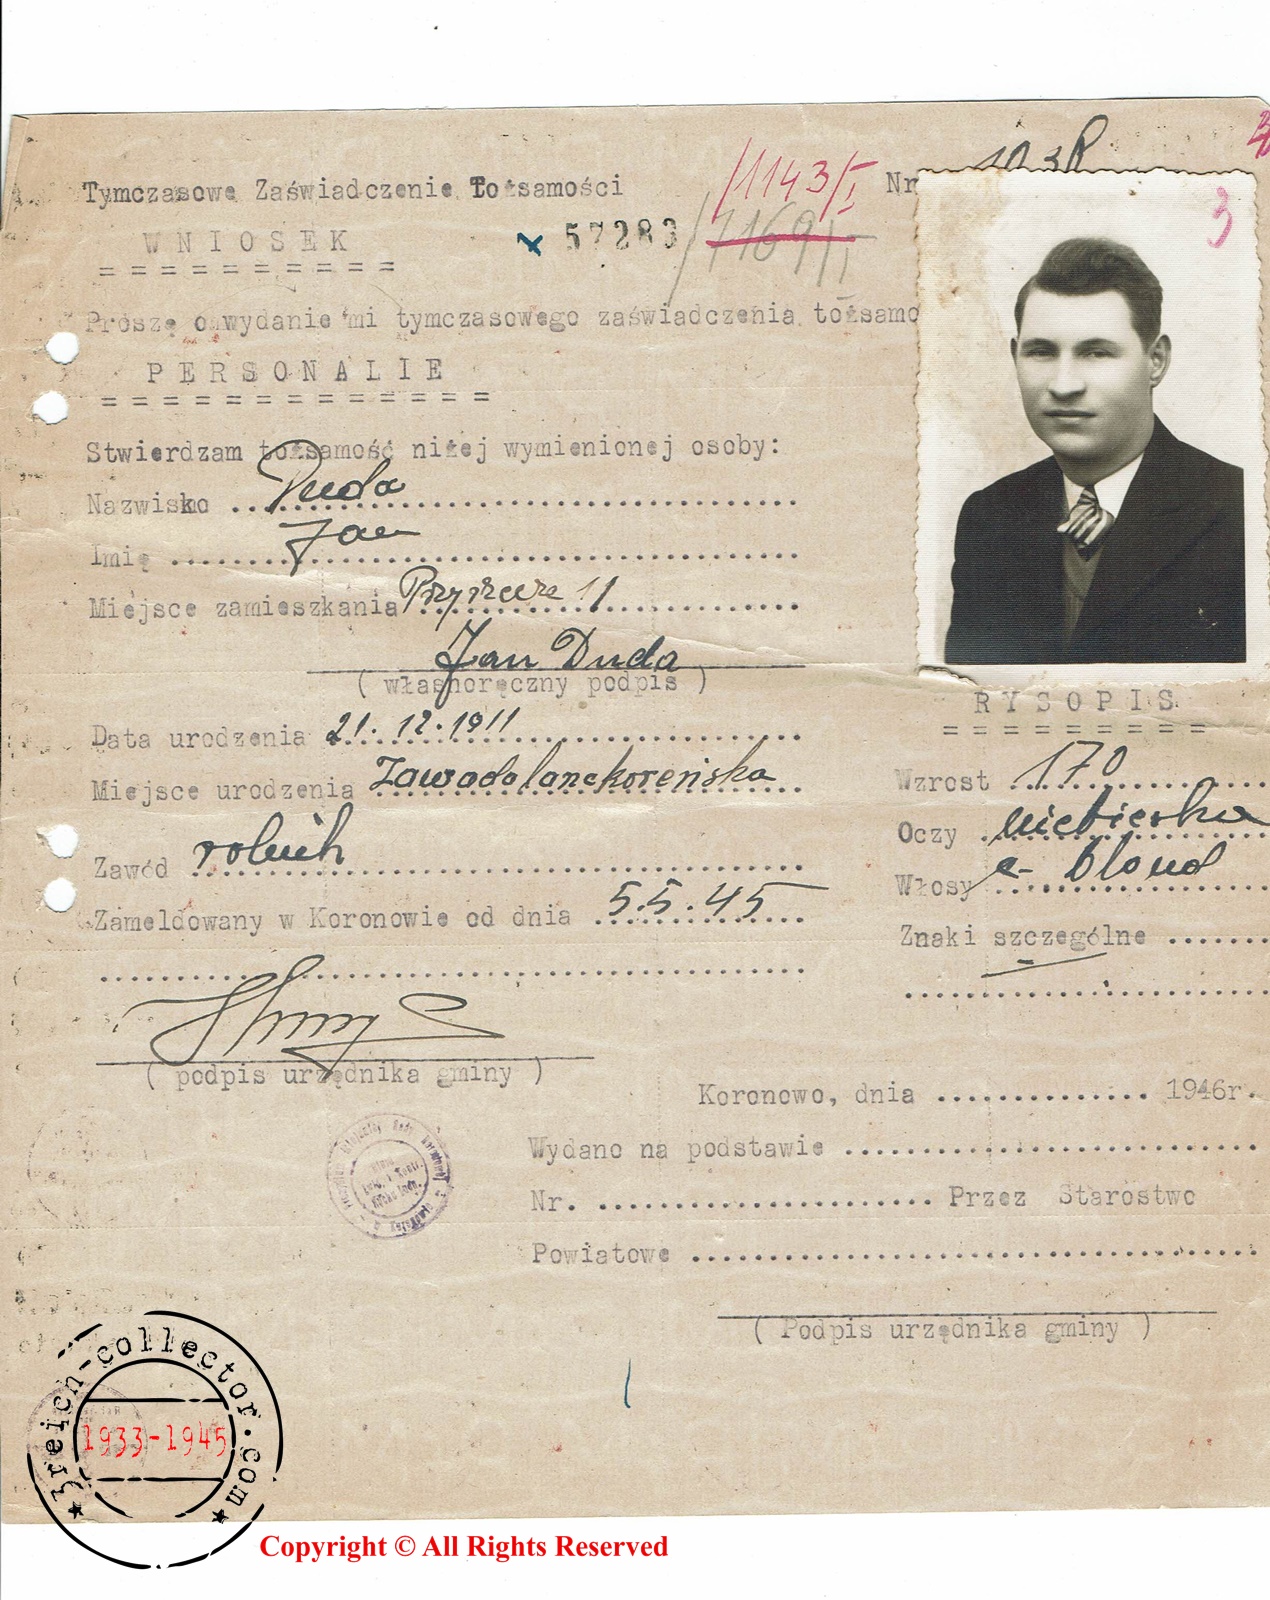 Tymczasowe Zaświadczenie Tożsamości
/1143/I
Nr
3
WNIOSEK
x 57283
/71691/I
==========
Proszę o wydanie mi tymczasowego zaświadczenia tożsamo
PERSONALIE
=============
Stwierdzam tożsamość niżej wymienionej osoby:
Nazwisko Duda
Imię Jan
Miejsce zamieszkania 11
Jan Duda
( własnoręczny podpis )
RYSOPIS
=========
Data urodzenia 21.12.1911
Miejsce urodzenia Zawadalanckoreńska
Wzrost 170
Oczy niebieskie
Zawód rolnik
Włosy c- blond
Zameldowany w Koronowie od dnia 5.5.45
Znaki szczególne
( podpis urzędnika gminy )
Koronowo, dnia 1946r.
Wydano na podstawie
Nr. Przez Starostwo
Powiatowe
( Podpis urzędnika gminy )
3reich-collector.com
1933-1945
Copyright © All Rights Reserved